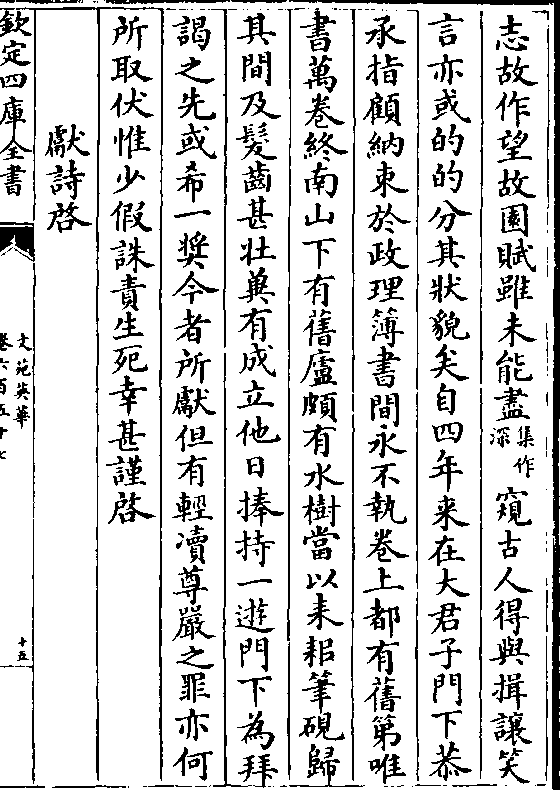 志故作望故園賦雖未能盡集作深窺古人得與揖讓笑
言亦或的的分其狀貌矣自四年来在大君子門下恭
承指顧納束於政理簿書間永不執卷上都有舊第唯
書萬卷終南山下有舊廬頗有水樹當以耒耜筆硯歸
其間及髮齒甚壯兾有成立他日捧持一遊門下為拜
謁之先或希一奬今者所獻但有輕凟尊嚴之罪亦何
所取伏惟少假誅責生死幸甚謹啓
獻詩啓
欽定四庫全書
文苑英華
卷六百五十七
十五